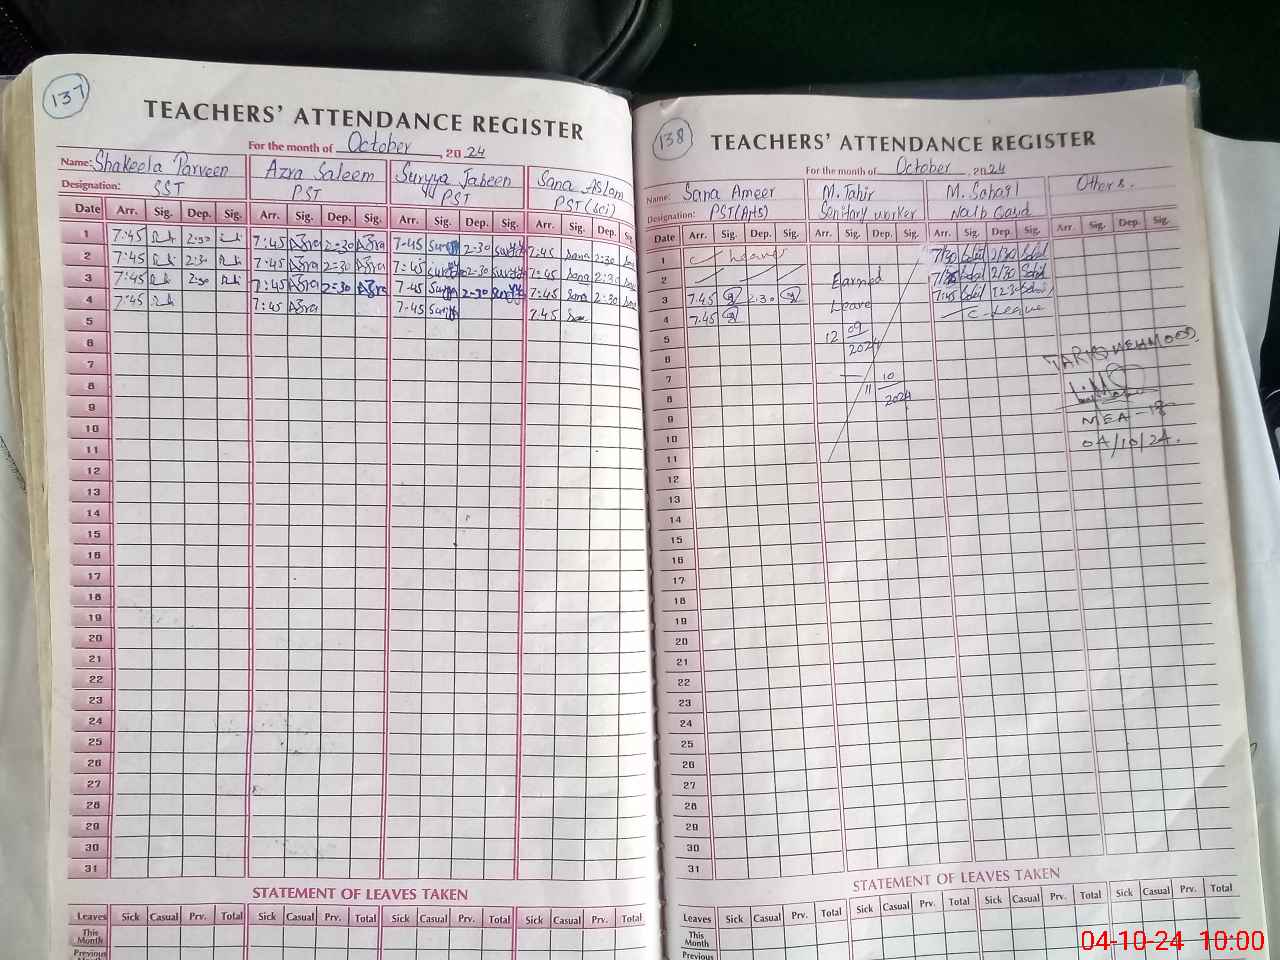 137
TEACHERS' ATTENDANCE REGISTER
For the month of October, 2024
Name: Shakeela Parveen Azra Saleem Suryya Jabeen Sana Aslam
Designation: SST PST PST PST(Sci)
Date Arr. Sig. Dep. Sig. Arr. Sig. Dep. Sig. Arr. Sig. Dep. Sig. Arr. Sig. Dep. Sig.
1 7:45 2:30 7:45 Azra 2=30 Azra 7-45 2-30 7:45 Sana 2:30
2 7:45 2:30 7:45 Azra 2=30 Azra 7:45 2-30 7:45 Sana 2:30
3 7:45 2:30 7:45 Azra 2=30 Azra 7-45 2-30 7:45 Sana 2:30
4 7:45 7:45 Azra 7-45 7:45
5
6
7
8
9
10
11
12
13
14
15
16
17
18
19
20
21
22
23
24
25
26
27
28
29
30
31
STATEMENT OF LEAVES TAKEN
Leaves Sick Casual Prv. Total Sick Casual Prv. Total Sick Casual Prv. Total Sick Casual Prv. Total
This Month
Previous
138
TEACHERS' ATTENDANCE REGISTER
For the month of October, 2024
Name: Sana Ameer M. Tahir M. Sohail Others.
Designation: PST(Arts) Sanitary worker Naib Qasid
Date Arr. Sig. Dep. Sig. Arr. Sig. Dep. Sig. Arr. Sig. Dep. Sig. Arr. Sig. Dep. Sig.
1 C-leave 7/30 2/30
2 Earned 2/30
3 7.45 2.30 7:45
4 7.45 Leave C-Leave
5 12 09
6 2024
7 10
8 11 2024
9
10
11
TARIQ MEHMOOD
MEA-18
04/10/24.
12
13
14
15
16
17
18
19
20
21
22
23
24
25
26
27
28
29
30
31
STATEMENT OF LEAVES TAKEN
Leaves Sick Casual Prv. Total Sick Casual Prv. Total Sick Casual Prv. Total Sick Casual Prv. Total
This Month
Previous
04-10-24 10:00